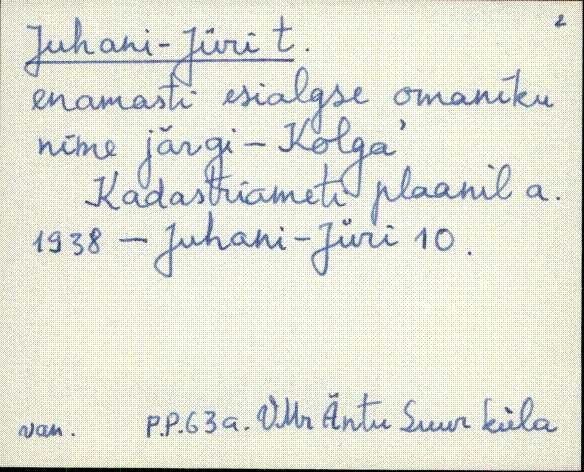 2
Juhani-Jüri t.
enamasti esialgse omaniku
nime järgi – Kolga'
Kadastriameti plaanil a.
1938 – Juhani-Jüri 10.
van. P.P.63a. VMr Äntu Suur küla